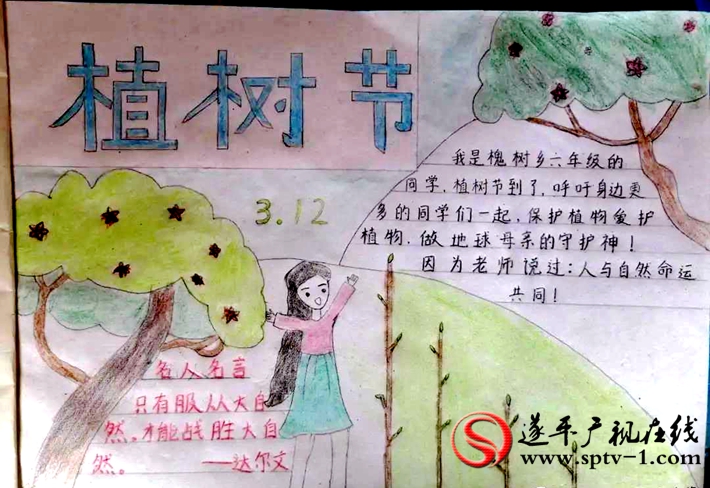 植树节
3.12
我是槐树乡六年级的
同学,植树节到了,呼吁身边更
多的同学们一起,保护植物爱护
植物,做地球母亲的守护神!
因为老师说过:人与自然命运
共同!
名人名言
只有服从大自
然,才能战胜大自
然。 ——达尔文
遂平广视在线
www.sptv-1.com